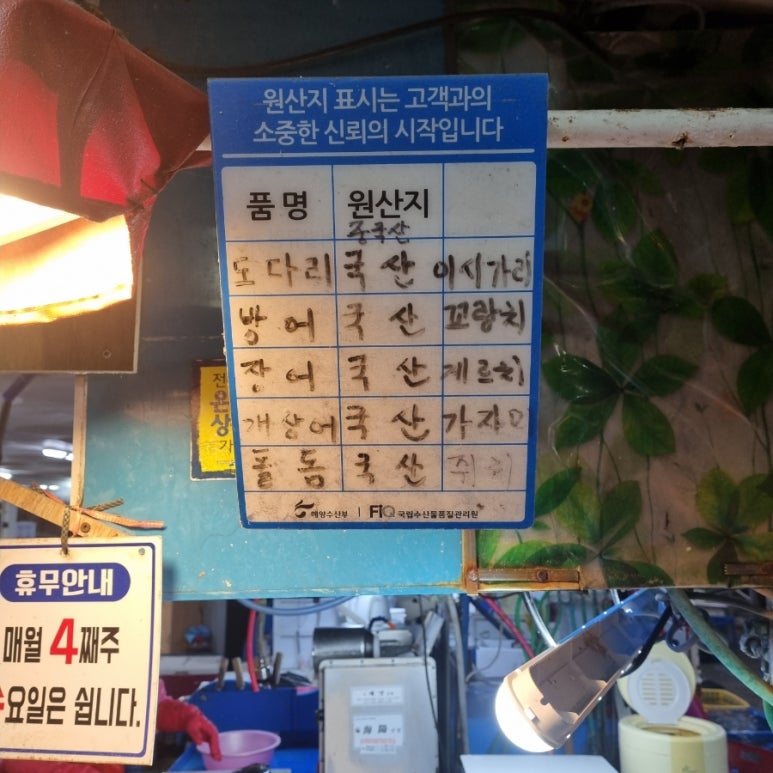 원산지 표시는 고객과의
소중한 신뢰의 시작입니다
품명 원산지
중국산
도다리 국산 이시가리
방어 국산 꼬랑치
장어 국산 게르치
개상어 국산 가자미
돌돔 국산 쥐치
해양수산부 | FIQ 국립수산물품질관리원
휴무안내
매월 4째주
수요일은 쉽니다.